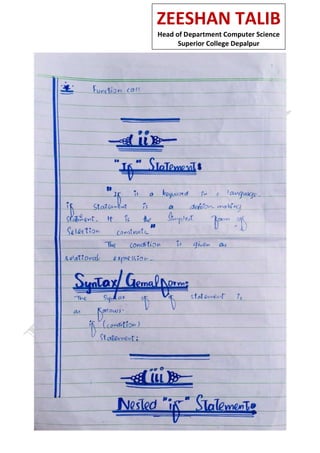 ZEESHAN TALIB
Head of Department Computer Science
Superior College Depalpur
Function call
ii
"If" Statement:
"If is a keyword in c language.
if statement is a decision making
statement. It is the simplest form of
selection constructs"
The condition is given as
relational expression.
Syntax/Genral form:
The Syntax of if statement is
as follows.
if (condition)
Statement;
iii
Nested "if" Statement: